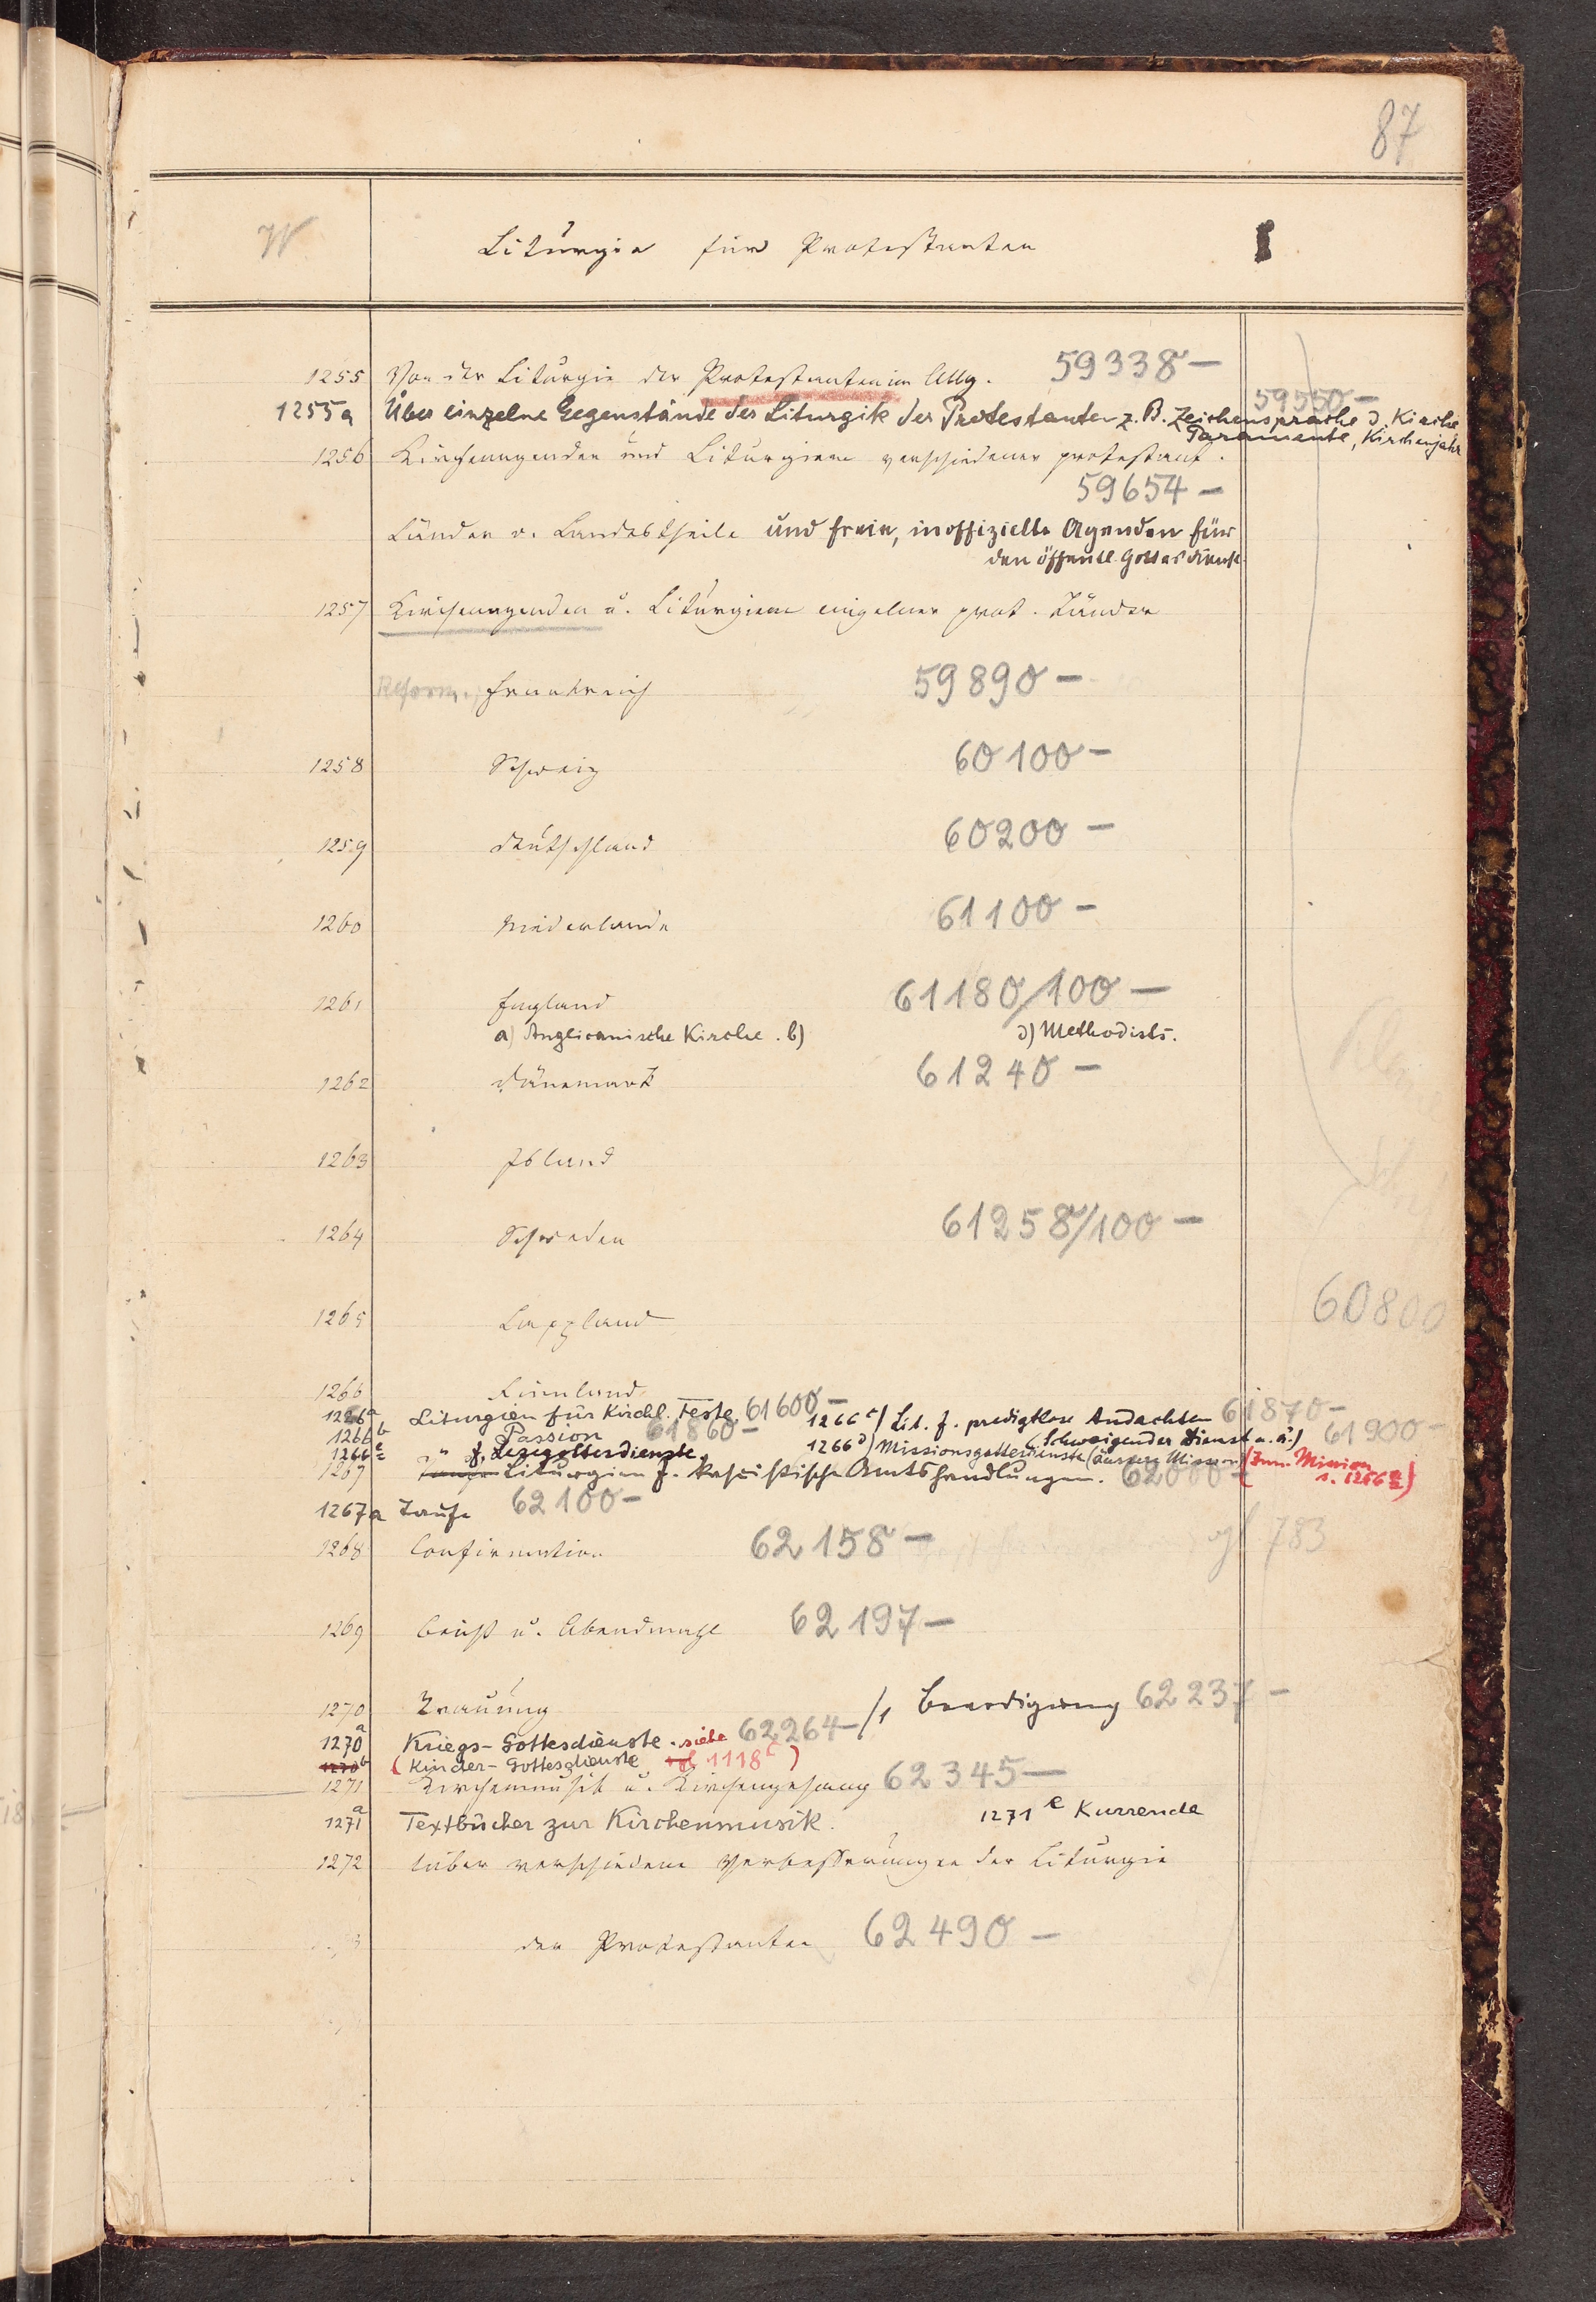 87
W Liturgie für Protestanten
1255 Von der Liturgie der Protestanten im Allg. 59338 –
59550 –
1255a Über einzelne Gegenstände der Liturgik der Protestanten z. B. Zeichensprache d. Kirche
Paramente, Kirchenjahr
1256 Kirchenagenden und Liturgieen verschiedener protestant.
59654 –
Länder o. Landestheile und freie, inoffizielle Agenden für
den öffentl. Gottesdienst.
1257 Kirchenagenden u. Liturgieen einzelner prot. Länder
Reform. Frankreich 59890 –
1258 Schweiz 60100 –
1259 Deutschland 60200 –
1260 Niederlande 61100 –
1261 England 61180/100 –
a) Anglicanische Kirche. b) d) Methodists.
1262 Dänemark 61240 –
1263 Island
1264 Schweden 61258/100 –
1265 Lappland 60800
1266 Finnland
1266a Liturgien für Kirchl. Feste 61600 – 1266c) Lit. f. predigtlose Andachten 61870 –
1266b Passion 61860 – (Schweigender Dienst u. ä.) 61900 –
1266e " f. Lesegottesdienste. 1266d) Missionsgottesdienste (äussere Mission) (Inn. Mission
1267 Liturgien f. kasuistische Amtshandlungen. 62000 – s. 1256a)
1267a Taufe 62100 –
1268 Confirmation 62158 – vgl 783
1269 Beicht u. Abendmahl 62197 –
1270 Trauung /1 Beerdigung 62237 –
1270a Kriegs-Gottesdienste. siehe 62264 –
1270b (Kinder-Gottesdienste 1118c)
1271 Kirchenmusik u. Kirchengesang 62345 –
1271a Textbücher zur Kirchenmusik. 1271e Kurrende
1272 Ueber verschiedene Verbesserungen der Liturgie
der Protestanten 62490 –